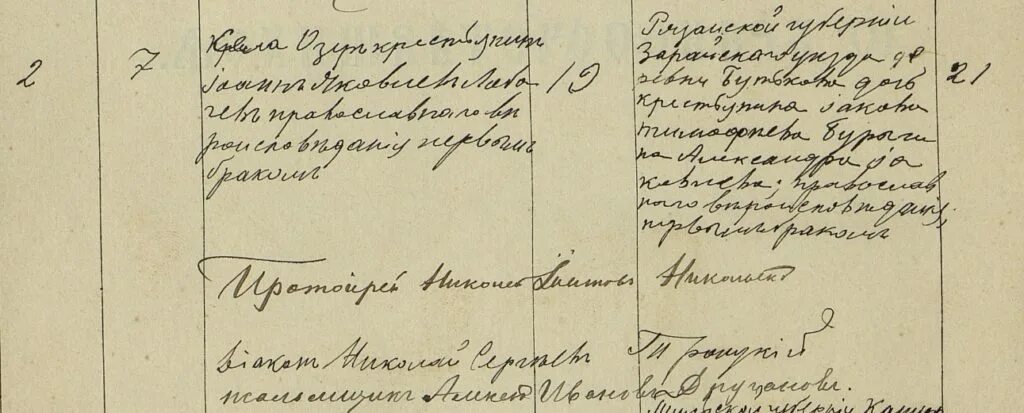 2
7
села Озун крестьянинъ
Іоаннъ Яковлевъ Лоба
чевъ православнаго вѣ
роисповѣданія первымъ
бракомъ
19
Рязанской губерніи
Зарайскаго уѣзда де
ревни дочь
крестьянина Іакова
Тимофеева Бурыги
на Александра Іа
ковлева; православ
наго вѣроисповѣданія;
первымъ бракомъ
21
Протоіерей Николай Никольскій
Діаконъ Николай Сергѣевъ Троицкій
псаломщикъ Алексѣй Ивановъ
губерній